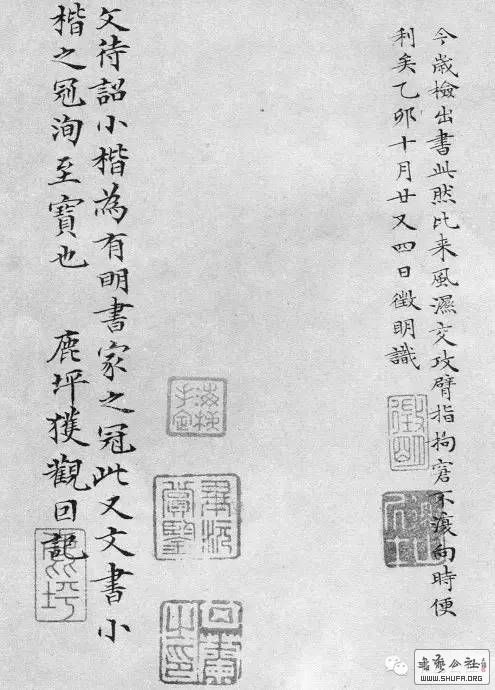 今歲檢出書此然比来風濕交攻臂指拘窘不復向時便
利矣乙卯十月廿又四日徵明識
徵明
海棪
手定
文待詔小楷為有明書家之冠此又文書小
楷之冠洵至寶也 鹿坪獲觀因記
鹿坪
書藝公社
WWW.SHUFA.ORG